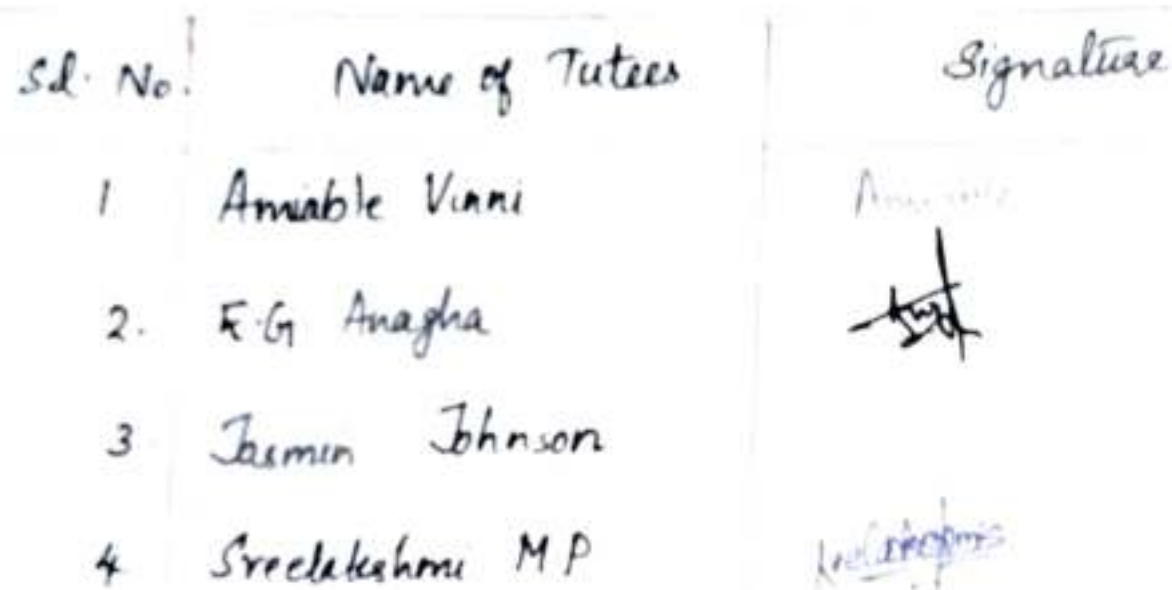 Sl. No. Name of Tutees Signature
1 Amiable Vinni
2. E.G Anagha
3 Jasmin Johnson
4 Sreelakshmi M P